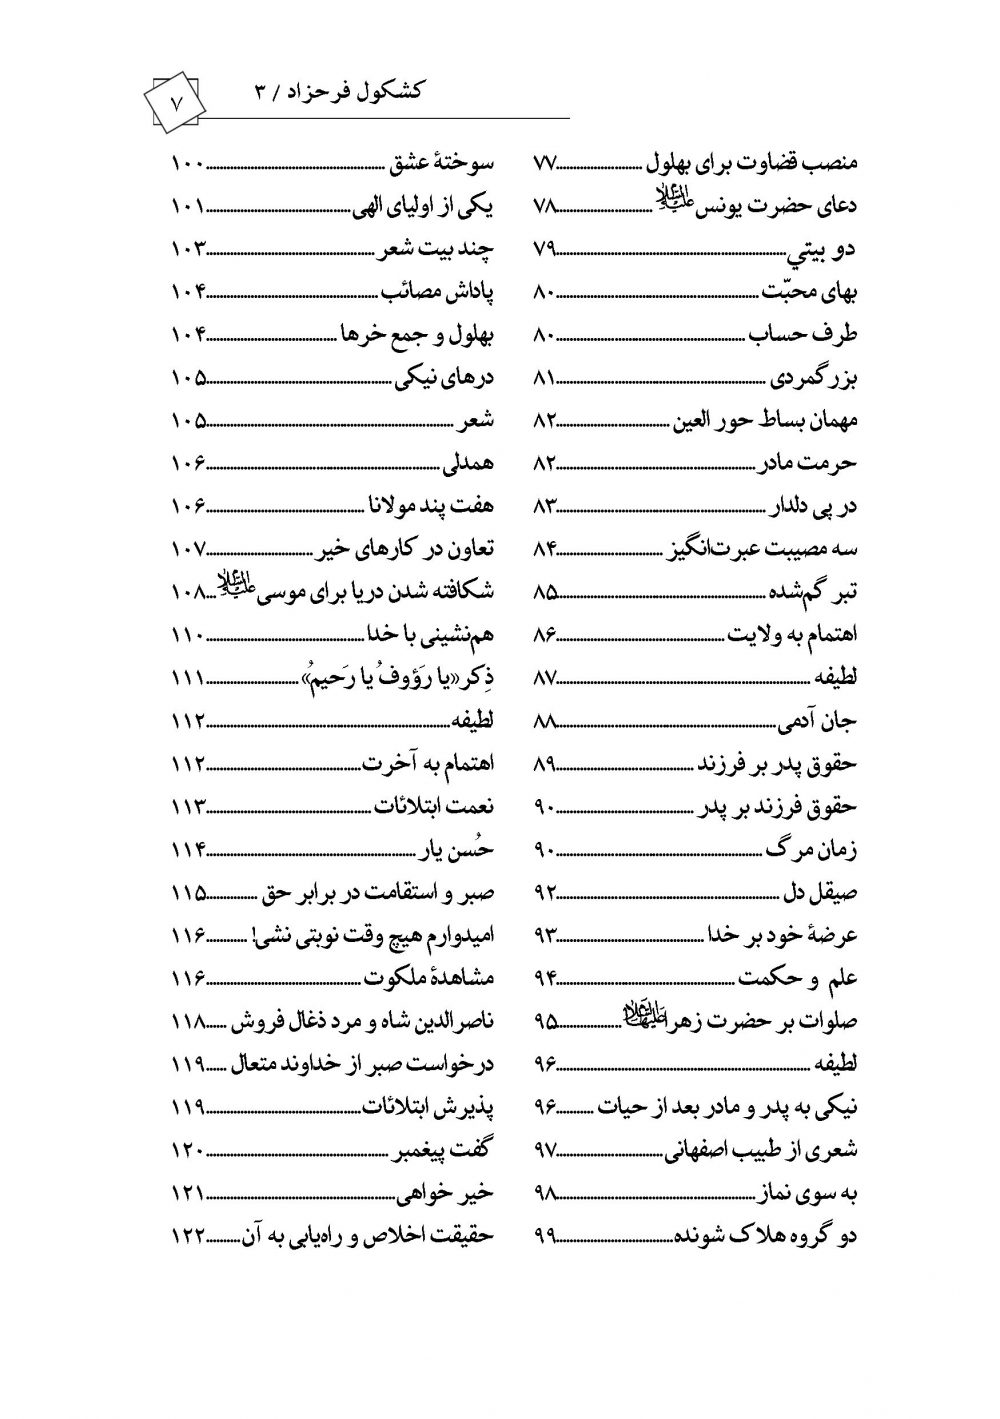 کشکول فرحزاد / ۳
۷
منصب قضاوت برای بهلول ........ ۷۷
دعای حضرت یونس علیه‌السلام ........ ۷۸
دو بیتي ........ ۷۹
بهای محبّت ........ ۸۰
طرف حساب ........ ۸۰
بزرگمردی ........ ۸۱
مهمان بساط حور العین ........ ۸۲
حرمت مادر ........ ۸۲
در پی دلدار ........ ۸۳
سه مصیبت عبرت‌انگیز ........ ۸۴
تبر گم‌شده ........ ۸۵
اهتمام به ولایت ........ ۸۶
لطیفه ........ ۸۷
جان آدمی ........ ۸۸
حقوق پدر بر فرزند ........ ۸۹
حقوق فرزند بر پدر ........ ۹۰
زمان مرگ ........ ۹۰
صیقل دل ........ ۹۲
عرضهٔ خود بر خدا ........ ۹۳
علم و حکمت ........ ۹۴
صلوات بر حضرت زهرا علیهاالسلام ........ ۹۵
لطیفه ........ ۹۶
نیکی به پدر و مادر بعد از حیات ........ ۹۶
شعری از طبیب اصفهانی ........ ۹۷
به سوی نماز ........ ۹۸
دو گروه هلاک شونده ........ ۹۹
سوختهٔ عشق ........ ۱۰۰
یکی از اولیای الهی ........ ۱۰۱
چند بیت شعر ........ ۱۰۳
پاداش مصائب ........ ۱۰۴
بهلول و جمع خرها ........ ۱۰۴
درهای نیکی ........ ۱۰۵
شعر ........ ۱۰۵
همدلی ........ ۱۰۶
هفت پند مولانا ........ ۱۰۶
تعاون در کارهای خیر ........ ۱۰۷
شکافته شدن دریا برای موسی علیه‌السلام ... ۱۰۸
هم‌نشینی با خدا ........ ۱۱۰
ذِکر «یا رَؤوفُ یا رَحیمُ» ........ ۱۱۱
لطیفه ........ ۱۱۲
اهتمام به آخرت ........ ۱۱۲
نعمت ابتلائات ........ ۱۱۳
حُسن یار ........ ۱۱۴
صبر و استقامت در برابر حق ........ ۱۱۵
امیدوارم هیچ وقت نوبتی نشی! ........ ۱۱۶
مشاهدهٔ ملکوت ........ ۱۱۶
ناصرالدین شاه و مرد ذغال فروش ..... ۱۱۸
درخواست صبر از خداوند متعال ..... ۱۱۹
پذیرش ابتلائات ........ ۱۱۹
گفت پیغمبر ........ ۱۲۰
خیر خواهی ........ ۱۲۱
حقیقت اخلاص و راه‌یابی به آن ........ ۱۲۲